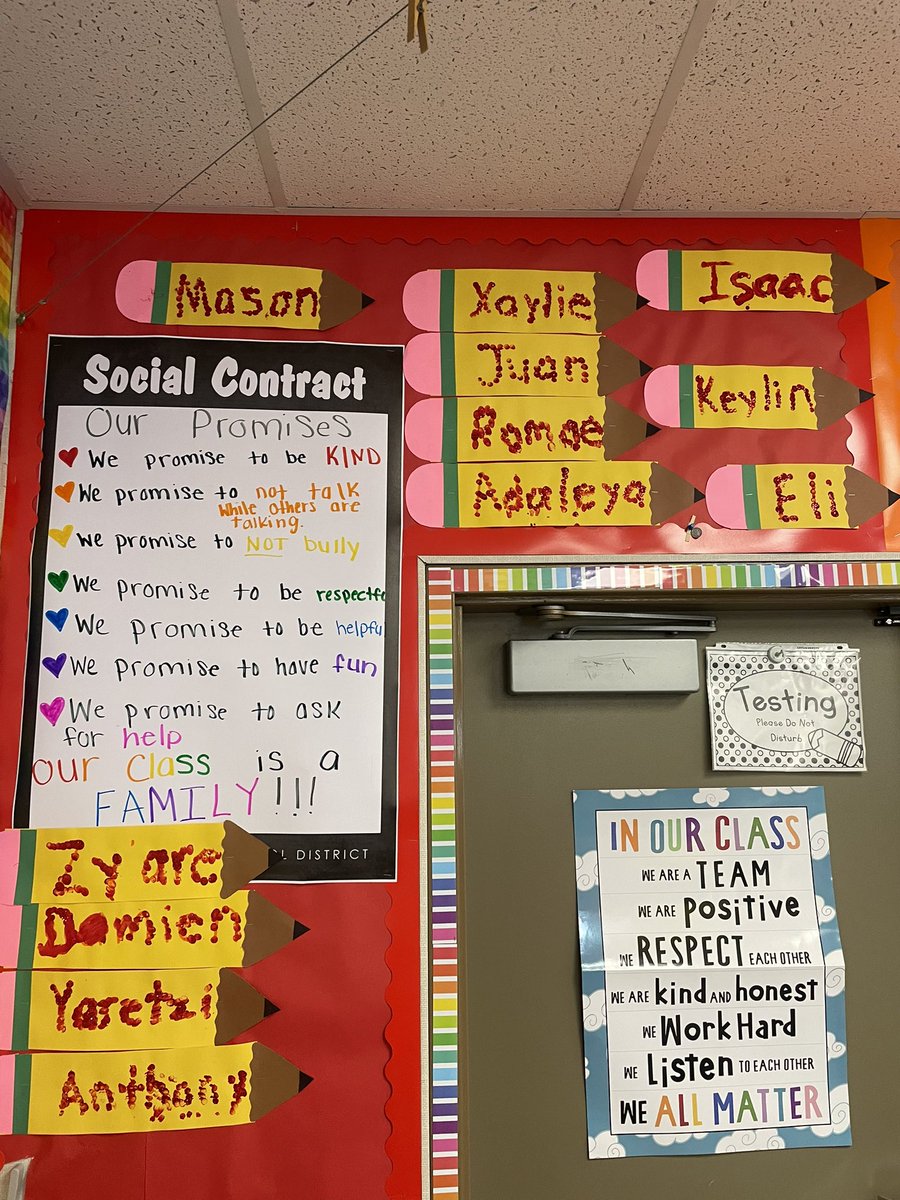 Mason
Xaylie
Juan
Romae
Adaleya
Isaac
Keylin
Eli
Social Contract
Our Promises
We promise to be KIND
We promise to not talk
while others are
talking.
We promise to NOT bully
We promise to be respectfu
We promise to be helpfu
We promise to have fun
We promise to ask
for help
our Class is a
FAMILY!!!
L DISTRICT
Zy'are
Damien
Yaretzi
Anthony
Testing
Please Do Not
Disturb
IN OUR CLASS
WE ARE A TEAM
WE ARE positive
WE RESPECT EACH OTHER
WE ARE kind AND honest
WE Work Hard
WE Listen TO EACH OTHER
WE ALL MATTER